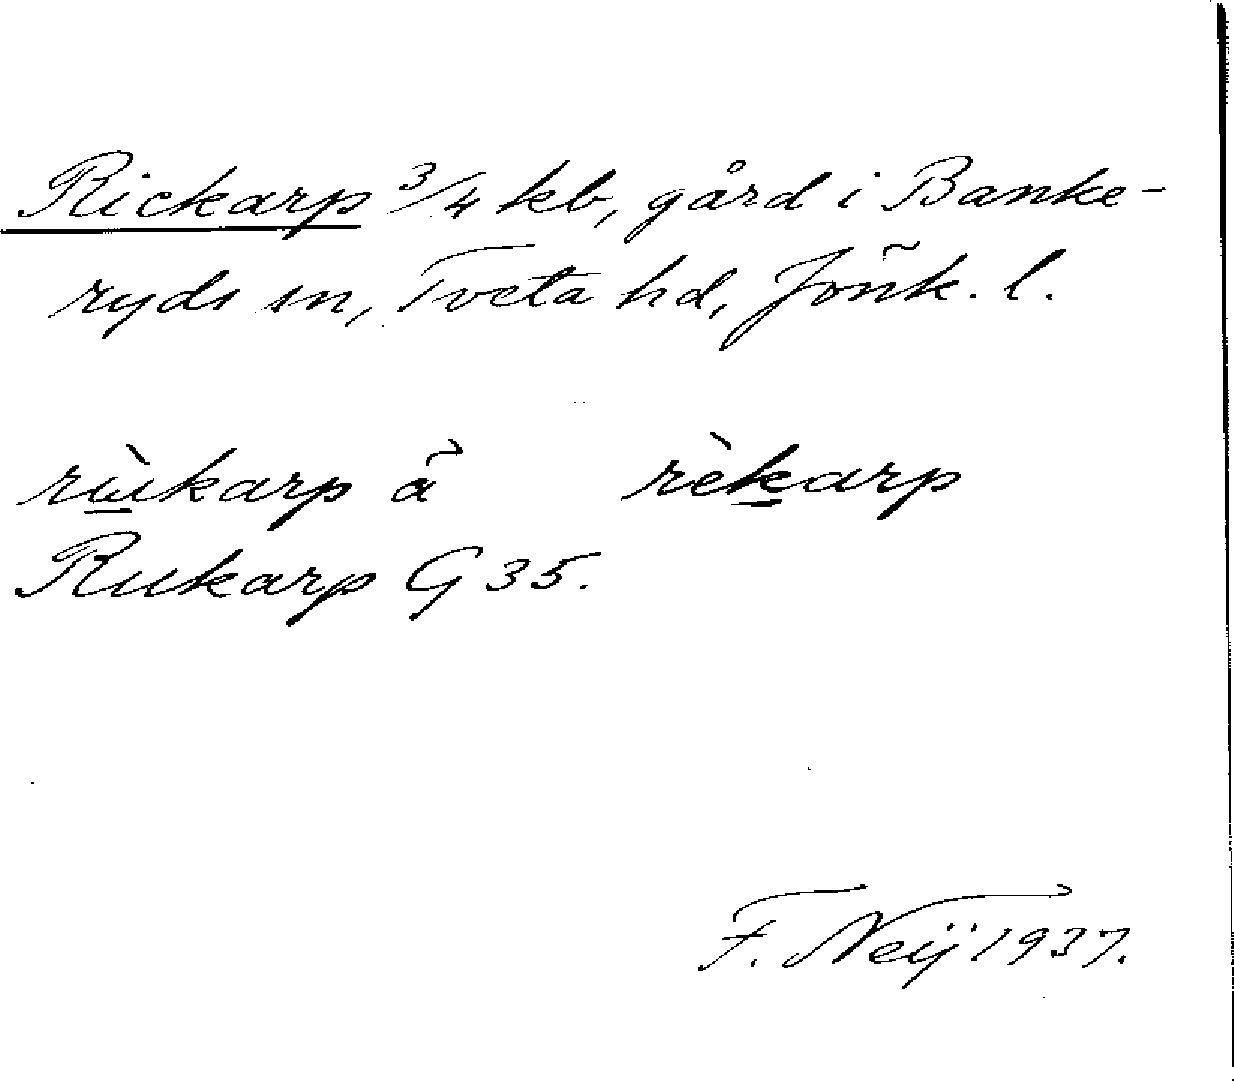 Rickarp 3/4 kb, gård i Banke-
ryds sn, Tveta hd, Jönk. l.
rùkarp ã rèkarp
Rukarp G 35.
F. Neij 1937.